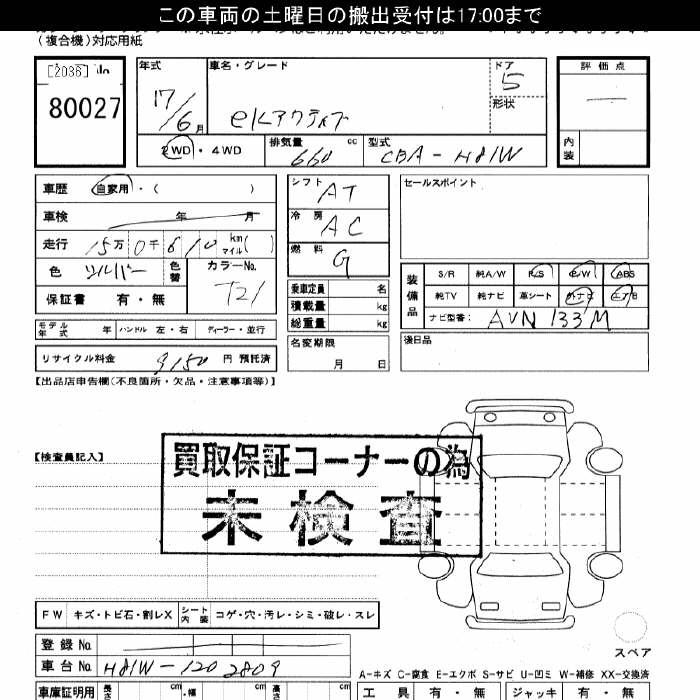 この車両の土曜日の搬出受付は17:00まで
(複合機)対応用紙
[2036] No
80027
年式
17/6月
車名・グレード
eKアクティブ
ドア
5
形状
評価点
内装
2WD・4WD
排気量
660 cc
型式
CBA-H81W
車歴 自家用・( )
車検 年 月
走行 15万0千610 km マイル( )
色 シルバー 色替
カラーNo.
T21
保証書 有・無
シフト AT
冷房 AC
燃料 G
乗車定員 名
積載量 kg
総重量 kg
名変期限
月 日
セールスポイント
装備品
S/R 純A/W P/S P/W ABS
純TV 純ナビ 革シート 外ナビ エアB
ナビ型番: AVN 133M
後日品
モデル年式 年 ハンドル 左・右 ディーラー・並行
リサイクル料金 9150 円 預託済
【出品店申告欄(不良箇所・欠品・注意事項等)】
【検査員記入】
買取保証コーナーの為
未検査
FW キズ・トビ石・割レX シート内装 コゲ・穴・汚レ・シミ・破レ・スレ
登録No.
車台No. H81W-1202809
スペア
A-キズ C-腐食 E-エクボ S-サビ U-凹ミ W-補修 XX-交換済
車庫証明用 長さ cm ・幅 cm 高さ cm
工具 有・無 ジャッキ 有・無